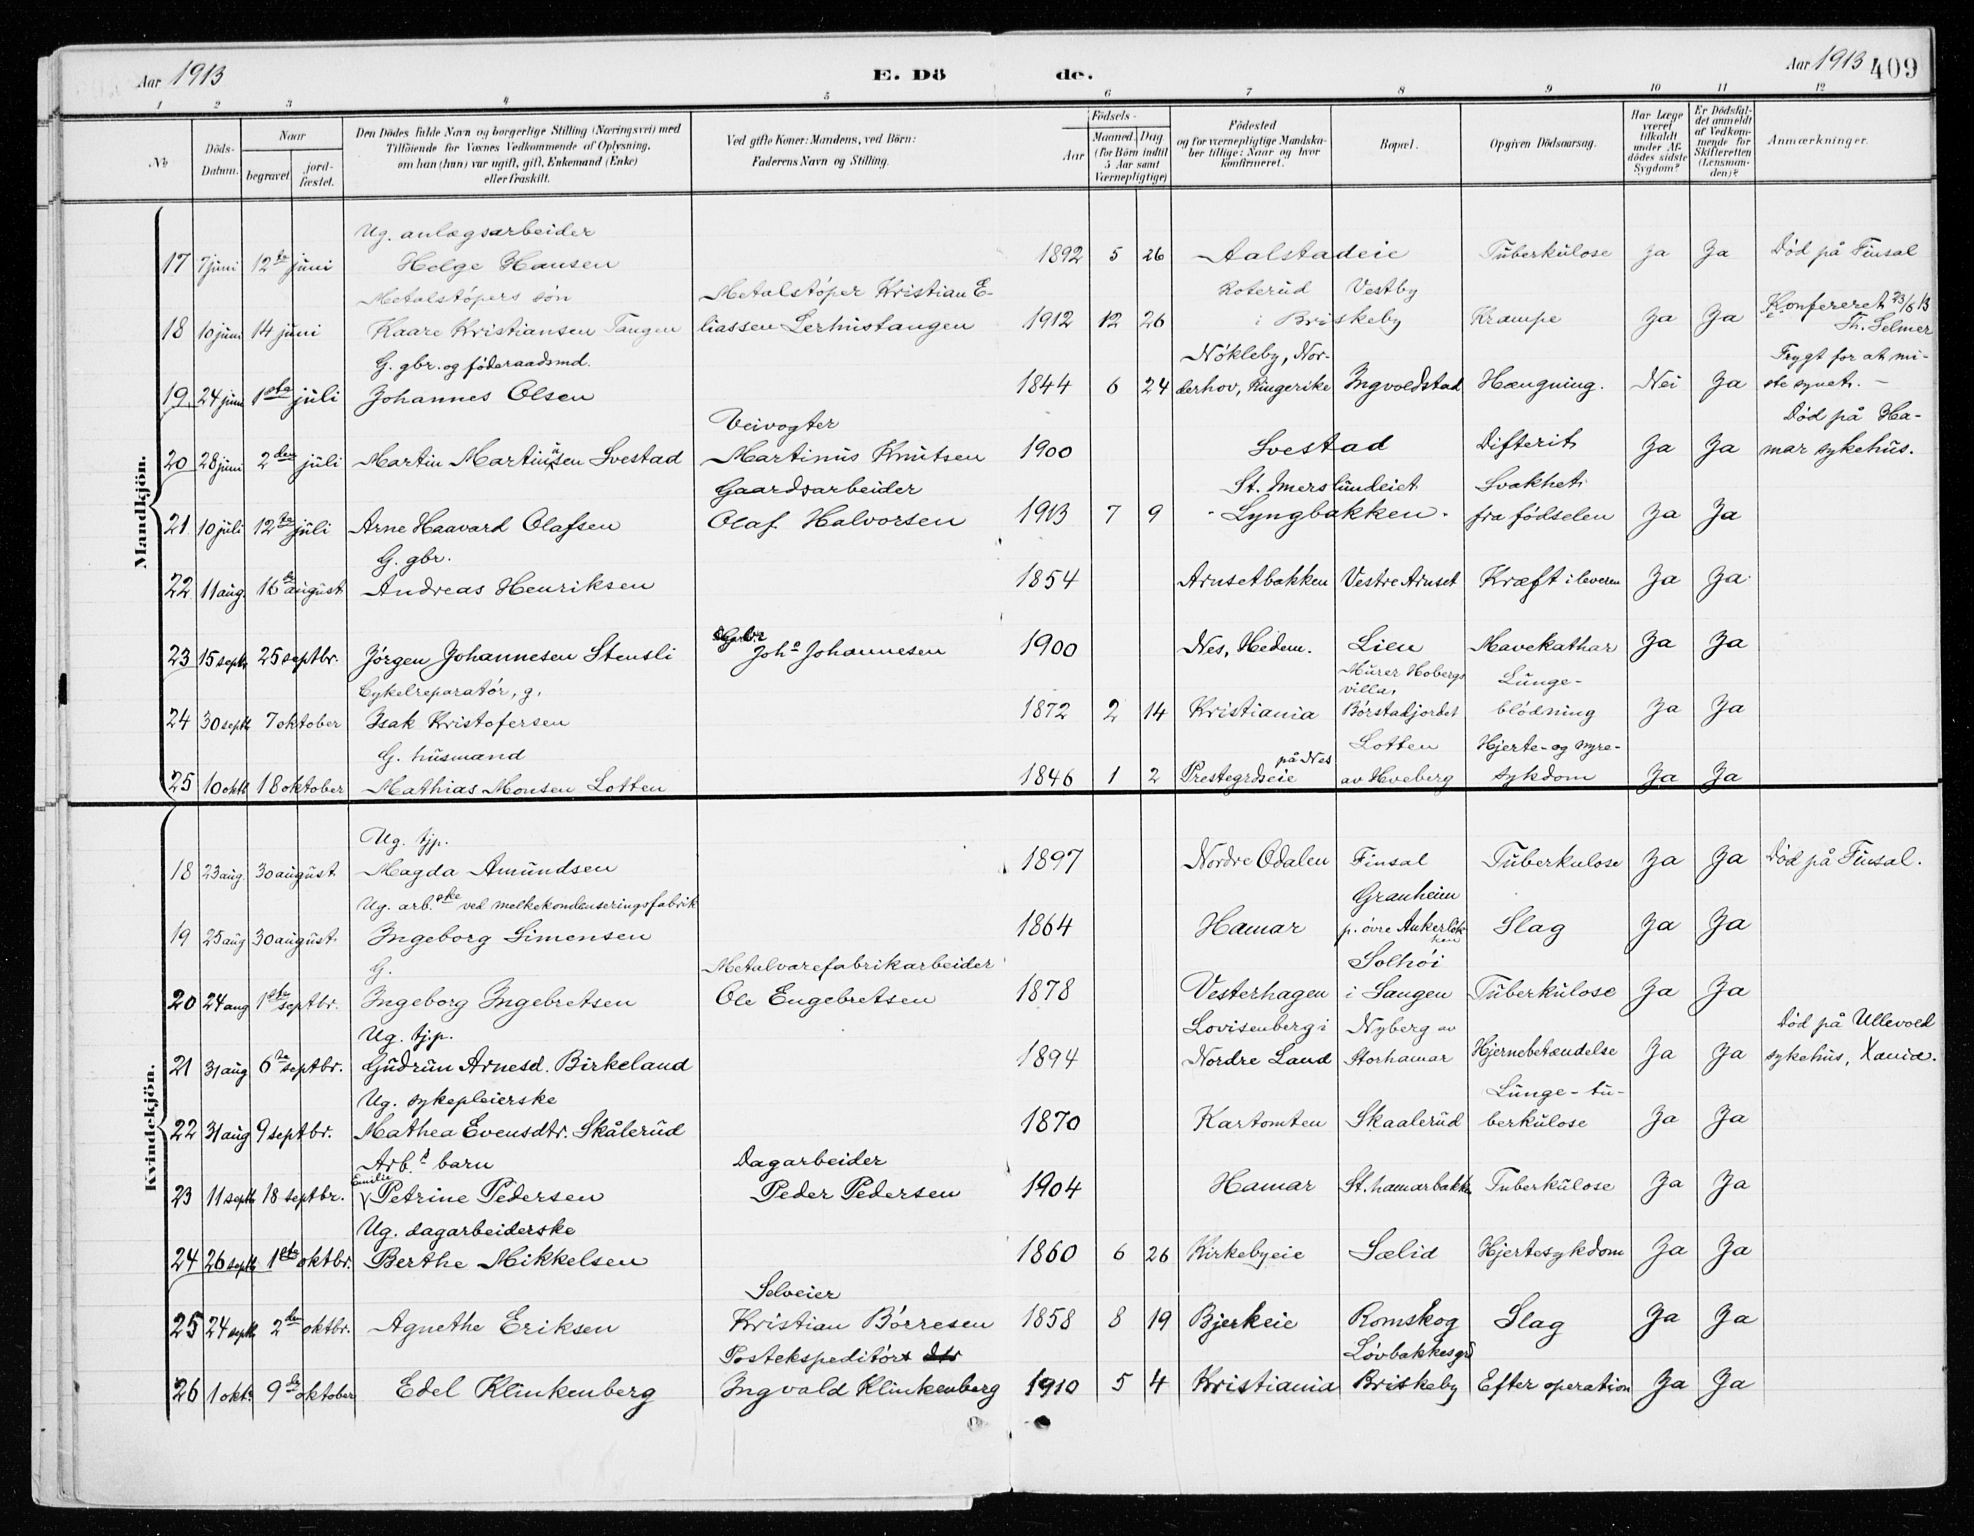 Aar 1913
E. Dö de.
Aar 1913 409
1 2 3 4 5 6 7 8 9 10 11 12
No
Döds-Datum.
Naar
begravet.
jord-fæstet.
Den Dödes fulde Navn og borgerlige Stilling (Næringsvei) med
Tilföiende for Voxnes Vedkommende af Oplysning,
om han (hun) var ugift, gift, Enkemand (Enke)
eller fraskilt.
Ved gifte Koner: Mandens, ved Börn:
Faderens Navn og Stilling.
Födsels-
Aar
Maaned. Dag
(for Börn indtil
5 Aar samt
Værnepligtige)
Födested
og for værnepligtige Mandska-
ber tillige: Naar og hvor
konfirmeret.
Bopæl.
Opgiven Dödsaarsag.
Har Læge
været
tilkaldt
under Af-
dödes sidste
Sygdom?
Er Dödsfal-
det anmeldt
af Vedkom-
mende for
Skifteretten
(Lensman-
den)?
Anmærkninger.
Mandkjön.
Ug. anlægsarbeider
17 7 juni 12te juni Helge Hansen 1892 5 26 Aalstadeie Tuberkulose Ja Ja Död på Finsal
Metalstöpers sön Metalstöper Kristian E- Roterud Vestby
18 10 juni 14 juni Kaare Kristiansen Tangen liassen Lerhustangen 1912 12 26 i Briskeby Krampe Ja Ja Konfereret 23/6 13
Th. Selmer
G. gbr. og föderaadsmd. Nökleby, Nor- Frygt for at mi-
19 24 juni 1ste juli Johannes Olsen 1844 6 24 derhov, Ringerike Ingvoldstad Hængning. Nei Ja ste synet. –
Veivogter Död på Ha-
20 28 juni 2den juli Martin Martinusen Svestad Martinus Knutsen 1900 Svestad Difterit Ja Ja mar sykehus.
Gaardsarbeider St. Imerslundeiet Svakhet
21 10 juli 12te juli Arne Haavard Olafsen Olaf Halvorsen 1913 7 9 Lyngbakken. fra födselen Ja Ja
G. gbr.
22 11 aug. 16de august Andreas Henriksen 1854 Arnsetbakken Vestre Arnset Kræft i leveren Ja Ja
23 15 septb 25 septbr. Jörgen Johannesen Stensli Johs Johannesen 1900 Nes, Hedem. Lien Mavekathar Ja Ja
Cykelreparatör, g. Murer Hobergs villa, Lunge-
24 30 septb 7 oktober Isak Kristofersen 1872 2 14 Kristiania Börstadjordet blödning Ja Ja
G. husmand på Nes Lotten Hjerte- og nyre-
25 10 oktb 18 oktober Mathias Monsen Lotten 1846 1 2 Prestegrdseie av Hveberg sykdom Ja Ja
Kvindekjön.
Ug. tjp.
18 23 aug. 30 august Magda Amundsen 1897 Nordre Odalen Finsal Tuberkulose Ja Ja Död på Finsal.
Ug. arb.ske ved melkekondenseringsfabrik Granheim
19 25 aug 30 august Ingeborg Simensen 1864 Hamar p. övre Ankerlökken Slag Ja Ja
G. Metalvarefabrikarbeider Solhöi
20 24 aug 1ste septbr. Ingeborg Ingebretsen Ole Engebretsen 1878 Vesterhagen i Sangen Tuberkulose Ja Ja
Ug. tj.p. Lovisenberg i Nyberg av Död på Ullevold
21 31 aug 6te septbr. Gudrun Arnesd. Birkeland 1894 Nordre Land Storhamar Hjernebetændelse Ja Ja sykehus, Xania.
Ug. sykepleierske Lunge-tu-
22 31 aug 9 septbr. Mathea Evensdtr. Skålerud 1870 Kartomten Skaalerud berkulose Ja Ja
Arb.s barn Dagarbeider
23 11 septb 18 septbr. Emilie Petrine Pedersen Peder Pedersen 1904 Hamar St.hamarbakken Tuberkulose Ja Ja
Ug. dagarbeiderske
24 26 septb 1ste oktbr. Berthe Mikkelsen 1860 6 26 Kirkebyeie Sælid Hjertesykdom Ja Ja
Selveier
25 24 septb 2den oktbr. Agnethe Eriksen Kristian Börresen 1858 8 19 Bjerkeie Romskog Slag Ja Ja
Postekspeditör Lövbakkesgrd
26 1 okt. 9de oktober Edel Klinkenberg Ingvald Klinkenberg 1910 5 4 Kristiania Briskeby Efter operation Ja Ja